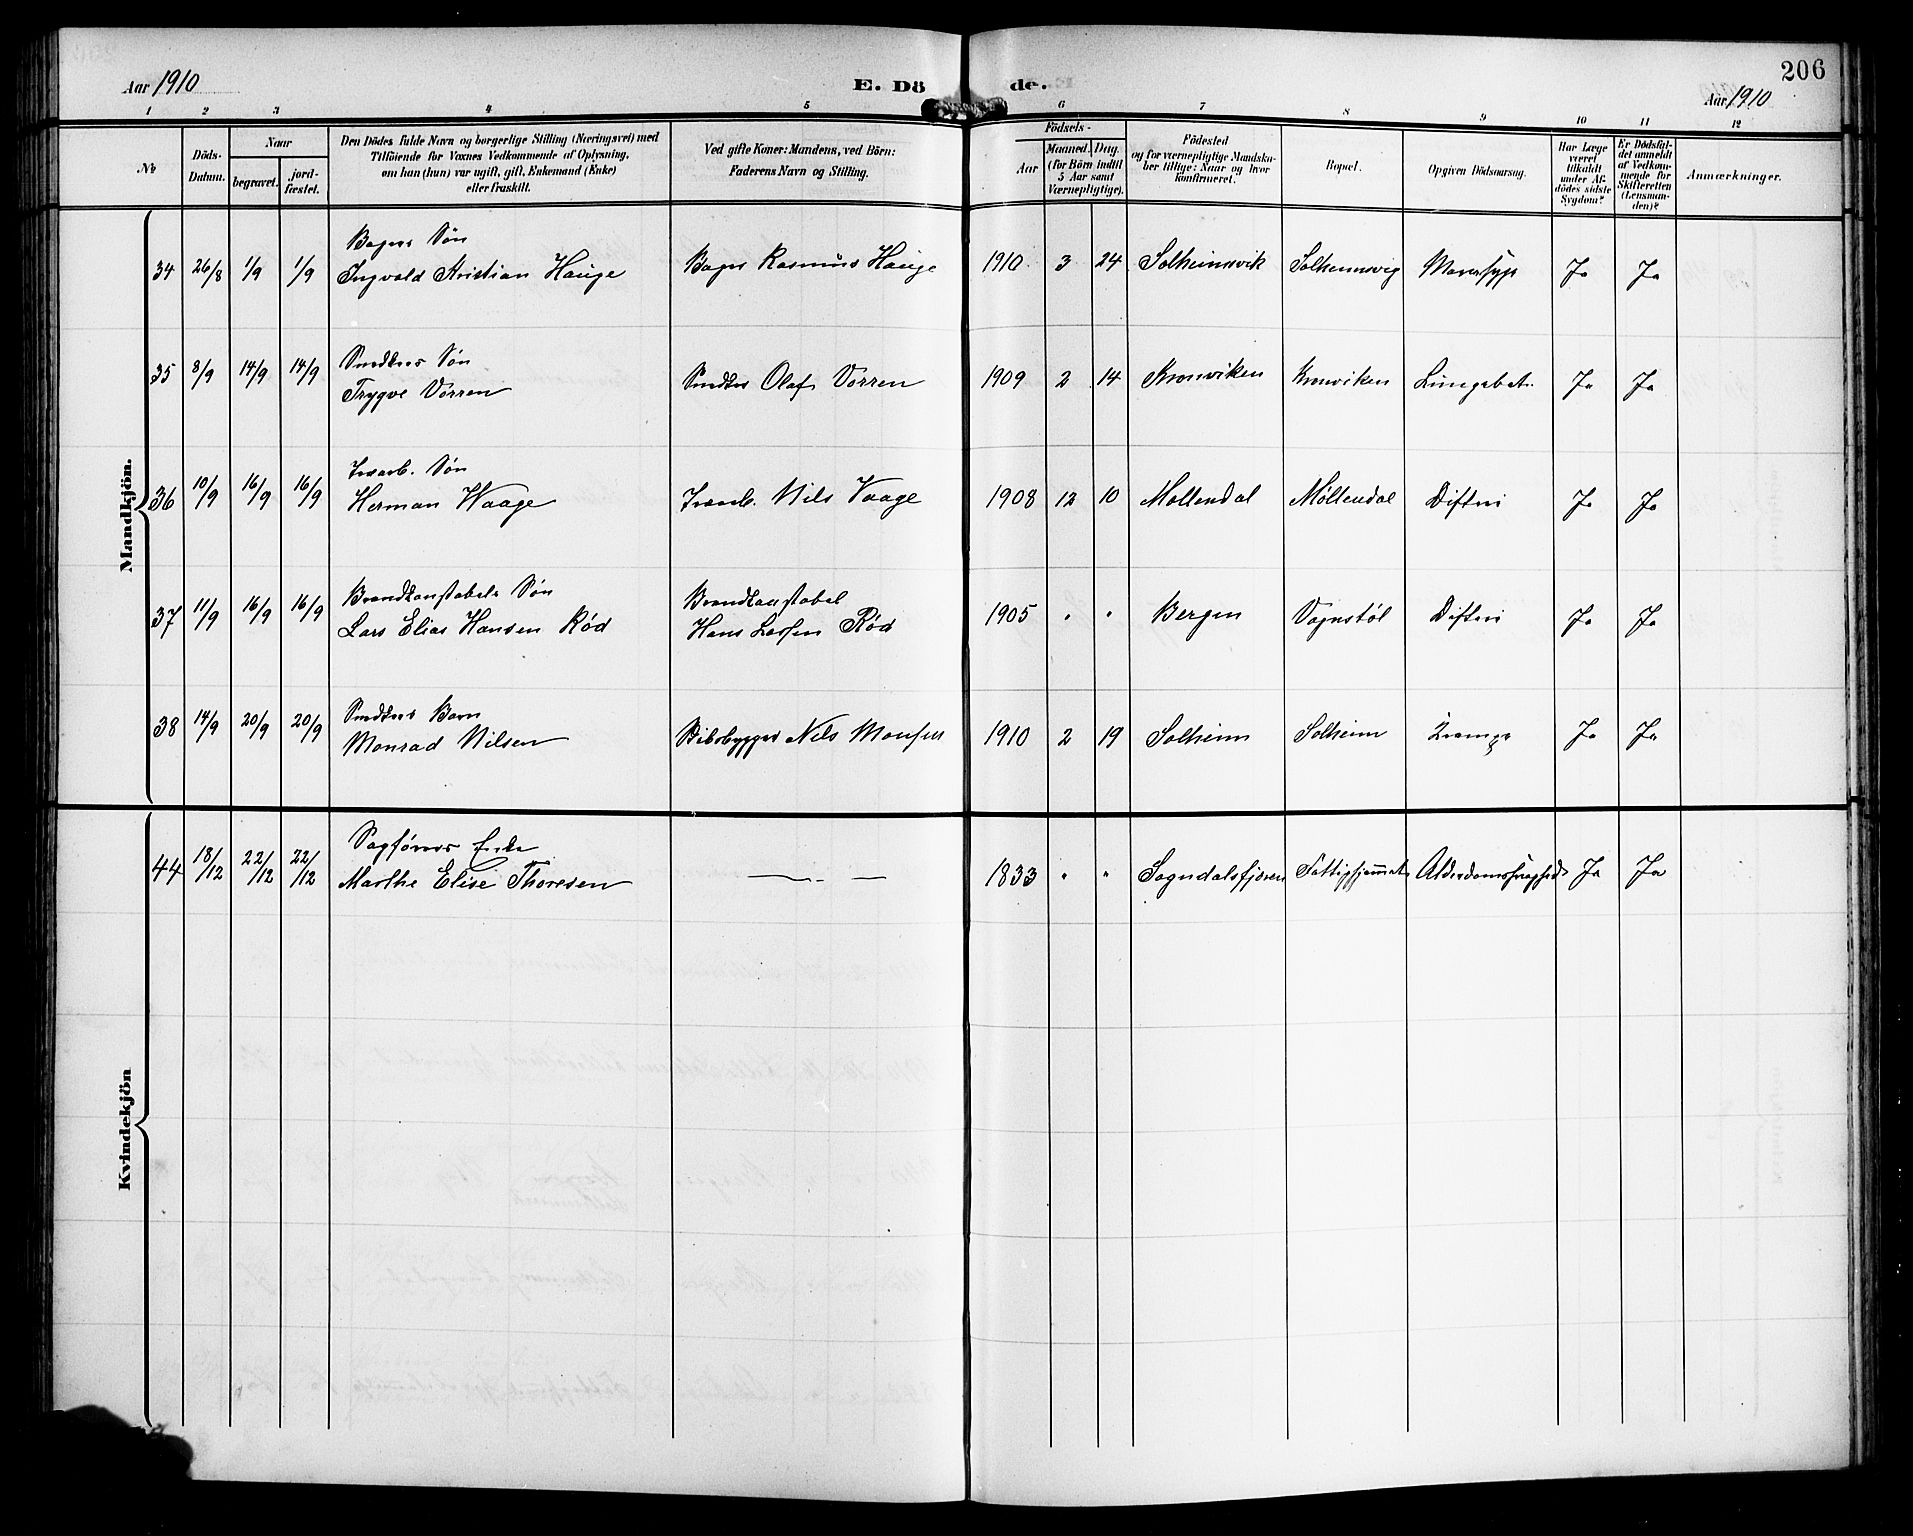 206
Aar 1910
E. Dö de.
Aar 1910
1 2 3 4 5 6 7 8 9 10 11 12
No
Döds-Datum.
Naar
begravet.
jord-fæstet.
Den Dödes fulde Navn og borgerlige Stilling (Næringsvei) med
Tilföiende for Voxnes Vedkommende af Oplysning,
om han (hun) var ugift, gift, Enkemand (Enke)
eller fraskilt.
Ved gifte Koner: Mandens, ved Börn:
Faderens Navn og Stilling.
Födsels-
Aar
Maaned. Dag.
(for Börn indtil
5 Aar samt
Værnepligtige).
Födested
og for værnepligtige Mandska-
ber tillige: Naar og hvor
konfirmeret.
Bopæl.
Opgiven Dödsaarsag.
Har Læge
været
tilkaldt
under Af-
dödes sidste
Sygdom?
Er Dödsfal-
det anmeldt
af Vedkom-
mende for
Skifteretten
(Lensman-
den)?
Anmærkninger.
Mandkjön.
Bagers Søn
34 26/8 1/9 1/9 Ingvald Kristian Hauge Bager Rasmus Hauge 1910 3 24 Solheimsvik Solheimsvig Mavesyge Ja Ja
Snedkers Søn
35 8/9 14/9 14/9 Trygve Vorren Snedker Olaf Vorren 1909 2 14 Kronviken Kronviken Lungebet. Ja Ja
Søn
36 10/9 16/9 16/9 Herman Waage Nils Vaage 1908 12 10 Møllendal Møllendal Difteri Ja Ja
Brandkonstabels Søn Brandkonstabel
37 11/9 16/9 16/9 Lars Elias Hansen Rød Hans Larsen Rød 1905 " " Bergen Vognstøl Difteri Ja Ja
Snedkers Barn
38 14/9 20/9 20/9 Monrad Nilsen Skibsbygger Nils Monsen 1910 2 19 Solheim Solheim Krampe Ja Ja
Kvindekjön
Sagførers Enke
44 18/12 22/12 22/12 Marthe Elise Thoresen — — 1833 " " Sogndalsfjøren Fattighjemmet Alderdomssvaghed Ja Ja